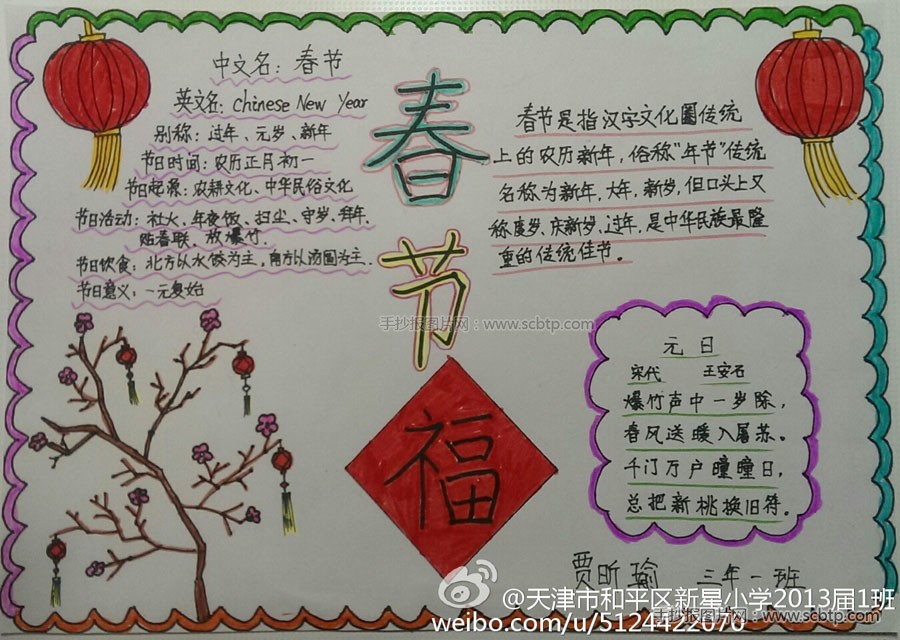 中文名：春节
英文名：Chinese New Year
别称：过年、元岁、新年
节日时间：农历正月初一
节日起源：农耕文化、中华民俗文化
节日活动：社火、年夜饭、扫尘、守岁、拜年、
贴春联、放爆竹.
节日饮食：北方以水饺为主，南方以汤圆为主.
节日意义：一元复始
春
节
福
春节是指汉字文化圈传统
上的农历新年，俗称"年节"传统
名称为新年，大年，新岁，但口头上又
称度岁、庆新岁、过年，是中华民族最隆
重的传统佳节。
元日
宋代 王安石
爆竹声中一岁除，
春风送暖入屠苏。
千门万户曈曈日，
总把新桃换旧符。
贾昕瑜 三年一班
手抄报图片网：www.scbtp.com
@天津市和平区新星小学2013届1班
手抄报图片网：www.scbtp.com
weibo.com/u/5124422070